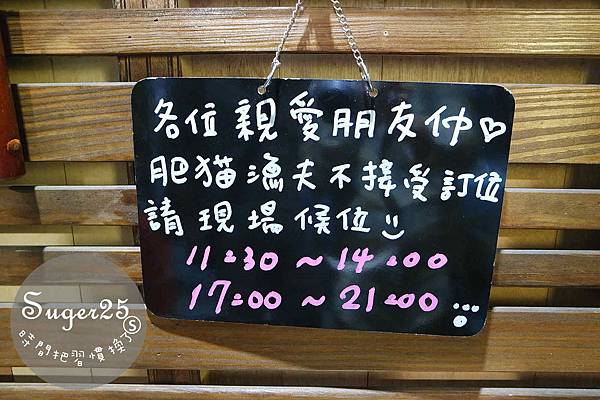 各位親愛朋友仲♡
肥貓漁夫不接受訂位
請現場候位
11:30 ~ 14:00
17:00 ~ 21:00
Suger25
時間把習慣換了
S